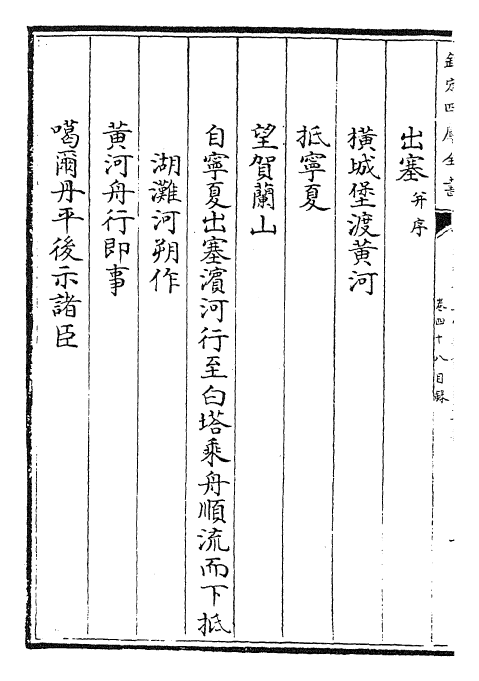 欽定四庫全書
卷四十八目錄
出塞 并序
橫城堡渡黃河
抵寧夏
望賀蘭山
自寧夏出塞濱河行至白塔乘舟順流而下抵
湖灘河朔作
黃河舟行即事
噶爾丹平後示諸臣